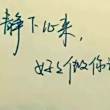 静下心来，
好好做你该